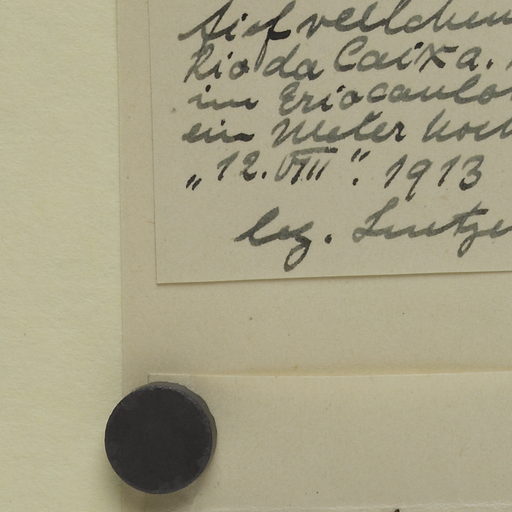 tief veilchen
Rio da Caixa.
im Eriocaulo
ein Meter hoch
„12. VIII". 1913
leg. Luetze